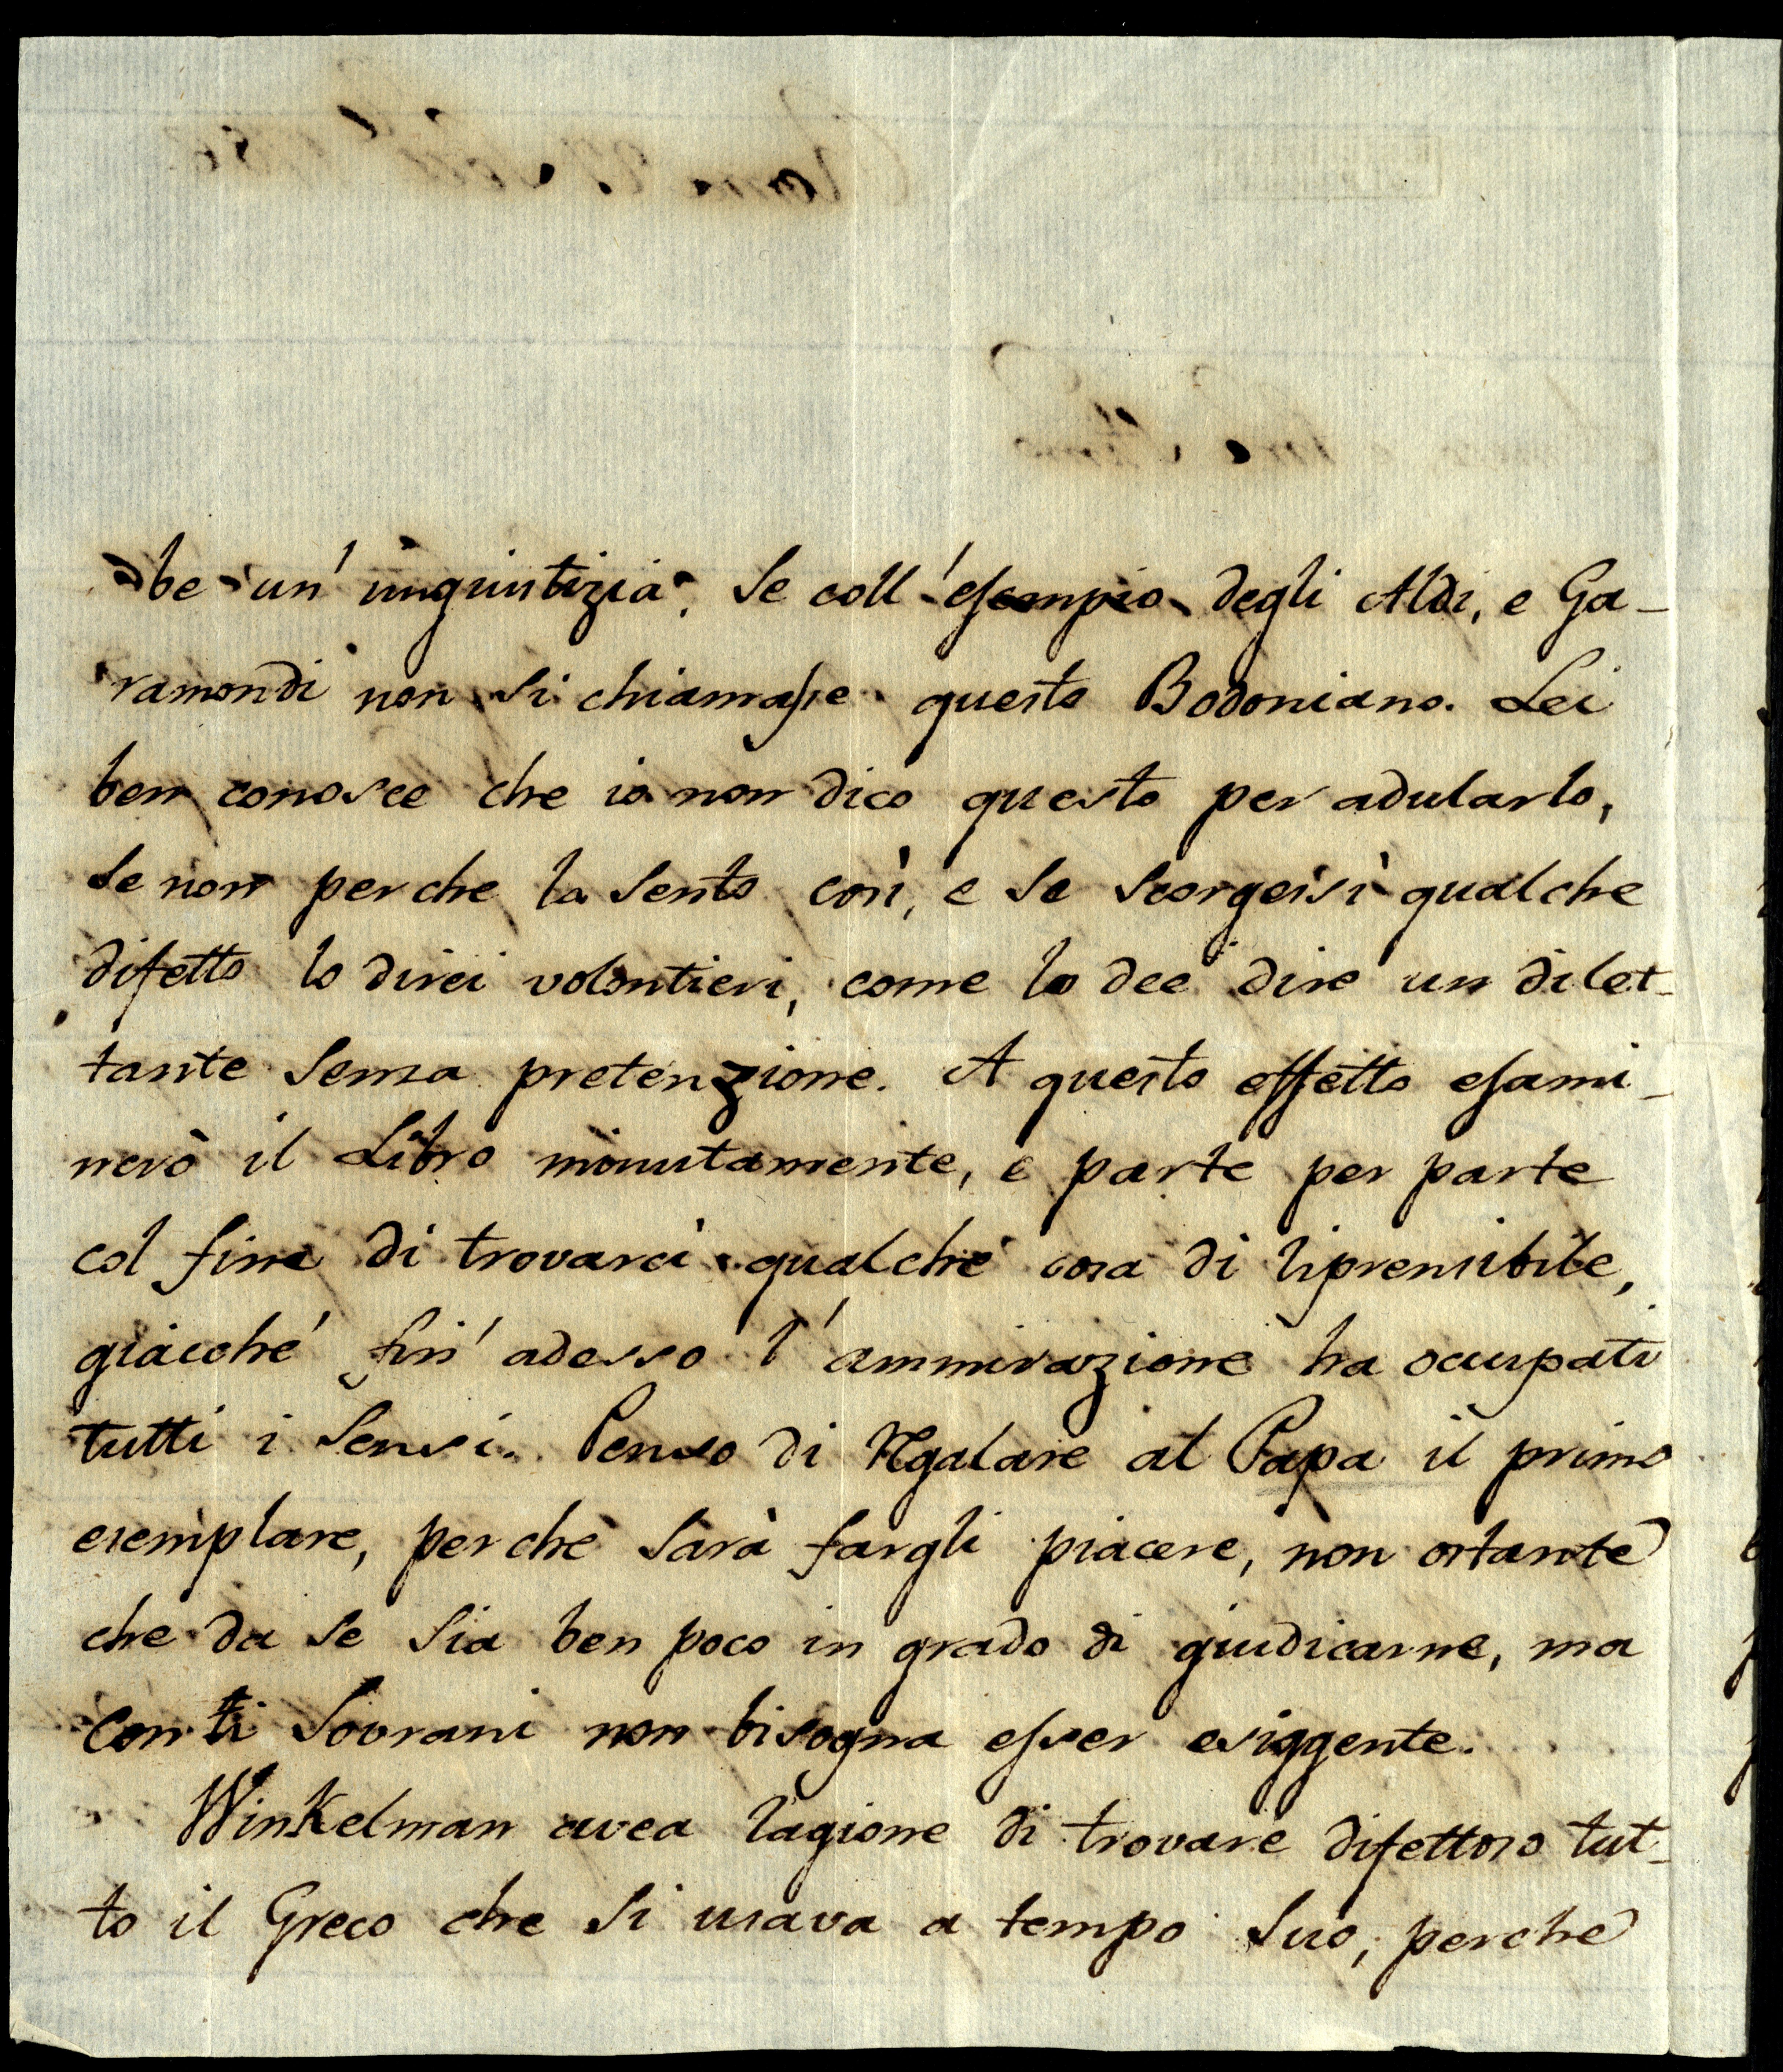 be un' inguistizia, se coll' esempio degli Aldi, e Ga-
ramondi non si chiamasse questo Bodoniano. Lei
ben conosce che io non dico questo per adularlo,
se non perche la sento così, e se scorgeisi qualche
difetto lo direi volontieri, come lo dee dire un dilet-
tante senza pretenzione. A questo effetto esami-
nerò il Libro minutamente, e parte per parte
col fine di trovarci qualche cosa di riprensibile,
giacché fin' adesso l'ammirazione ha ocupati
tutti i sensi. Penso di Regalare al Papa il primo
esemplare, perchè sarà fargli piacere, non ostante
che da se sia ben poco in grado di giudicarne, ma
con ti Sovrani non bisogna esser esiggente.
Winkelman avea ragione di trovare difettoso tut-
to il Greco che si usava a tempo suo, perche